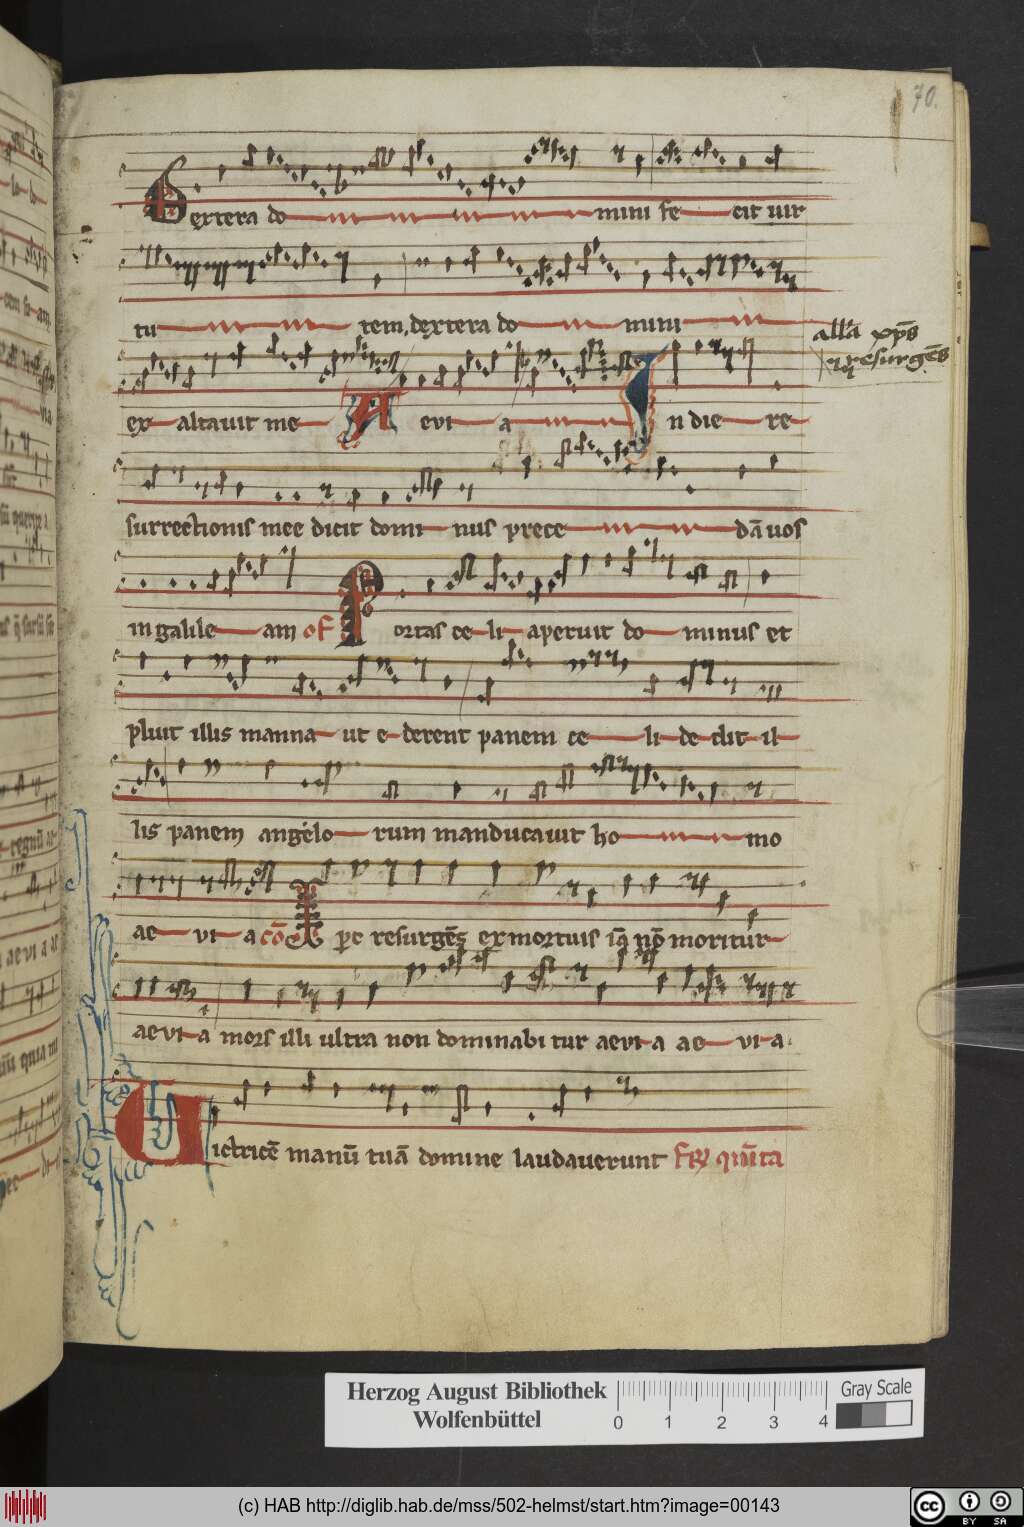 70.
Dextera do mini fe cit uir
tu tem, dextera do mini
allā xp̄s
resurgēs
ex altauit me A evi a In die re
surrectionis mee dicit domi nus prece dā uos
in galile am of Portas ce li aperuit do minus et
pluit illis manna ut e derent panem ce li de dit il
lis panem angelo rum manducauit ho mo
ae vi a cō Xpc resurgēs ex mortuis iā nō moritur
aevi a mors illi ultra non dominabi tur aevi a ae vi a
Uictricē manū tuā domine laudauerunt
Herzog August Bibliothek
Wolfenbüttel
0 1 2 3 4
Gray Scale
(c) HAB http://diglib.hab.de/mss/502-helmst/start.htm?image=00143
cc BY SA